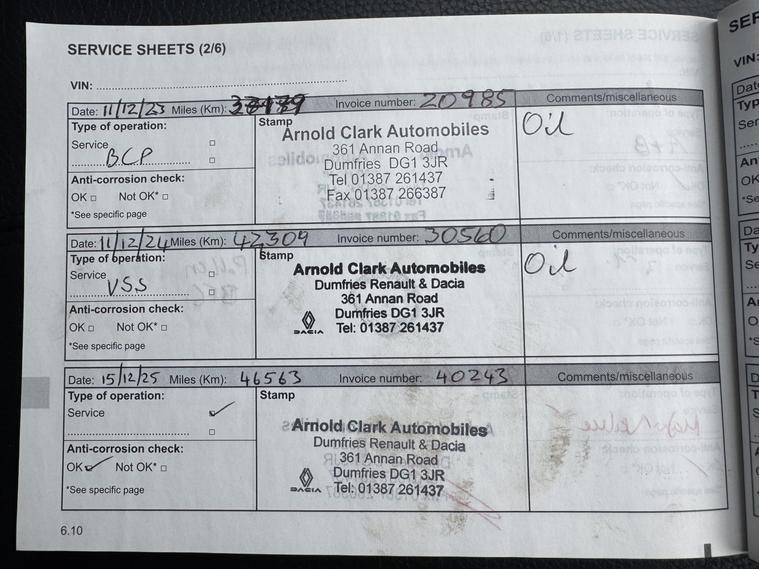 SERVICE SHEETS (2/6)
VIN:
Date: 11/12/23 Miles (Km): Invoice number: 20985 Comments/miscellaneous
Type of operation:
Service
B.C.P
Anti-corrosion check:
OK Not OK*
*See specific page
Stamp
Arnold Clark Automobiles
361 Annan Road
Dumfries DG1 3JR
Tel 01387 261437
Fax 01387 266387
Oil
Date: 11/12/24 Miles (Km): 42309 Invoice number: 30560 Comments/miscellaneous
Type of operation:
Service
VSS
Anti-corrosion check:
OK Not OK*
*See specific page
Stamp
Arnold Clark Automobiles
Dumfries Renault & Dacia
361 Annan Road
Dumfries DG1 3JR
Tel: 01387 261437
DACIA
Oil
Date: 15/12/25 Miles (Km): 46563 Invoice number: 40243 Comments/miscellaneous
Type of operation:
Service
Anti-corrosion check:
OK Not OK*
*See specific page
Stamp
Arnold Clark Automobiles
Dumfries Renault & Dacia
361 Annan Road
Dumfries DG1 3JR
Tel: 01387 261437
DACIA
6.10
VIN: